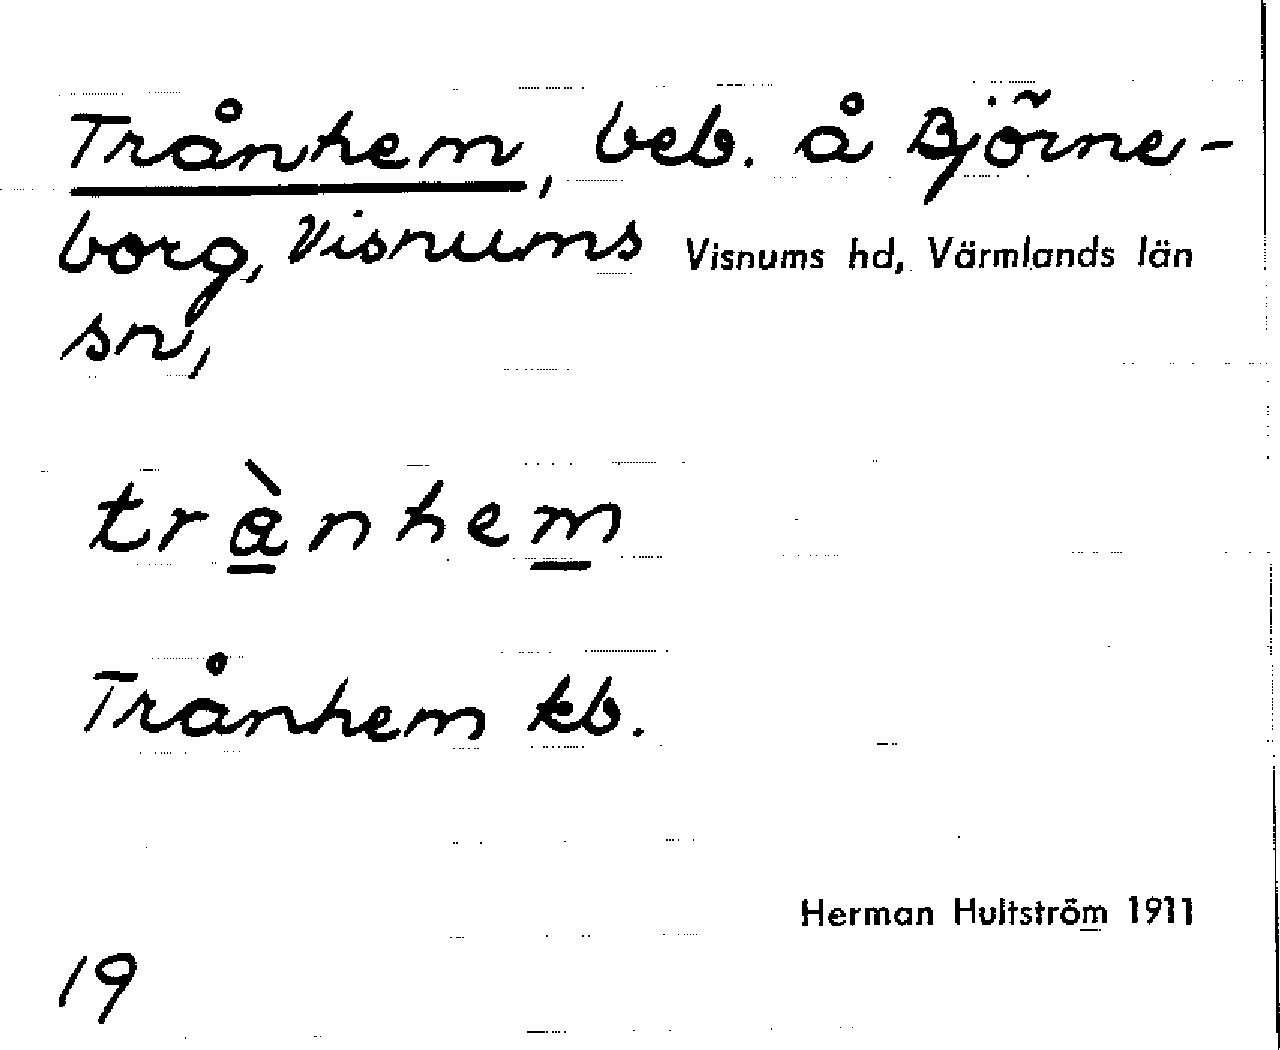 Trånhem, beb. å Björne-
borg, Visnums Visnums hd, Värmlands län
sn,
trànhem
Trånhem kb.
Herman Hultström 1911
19